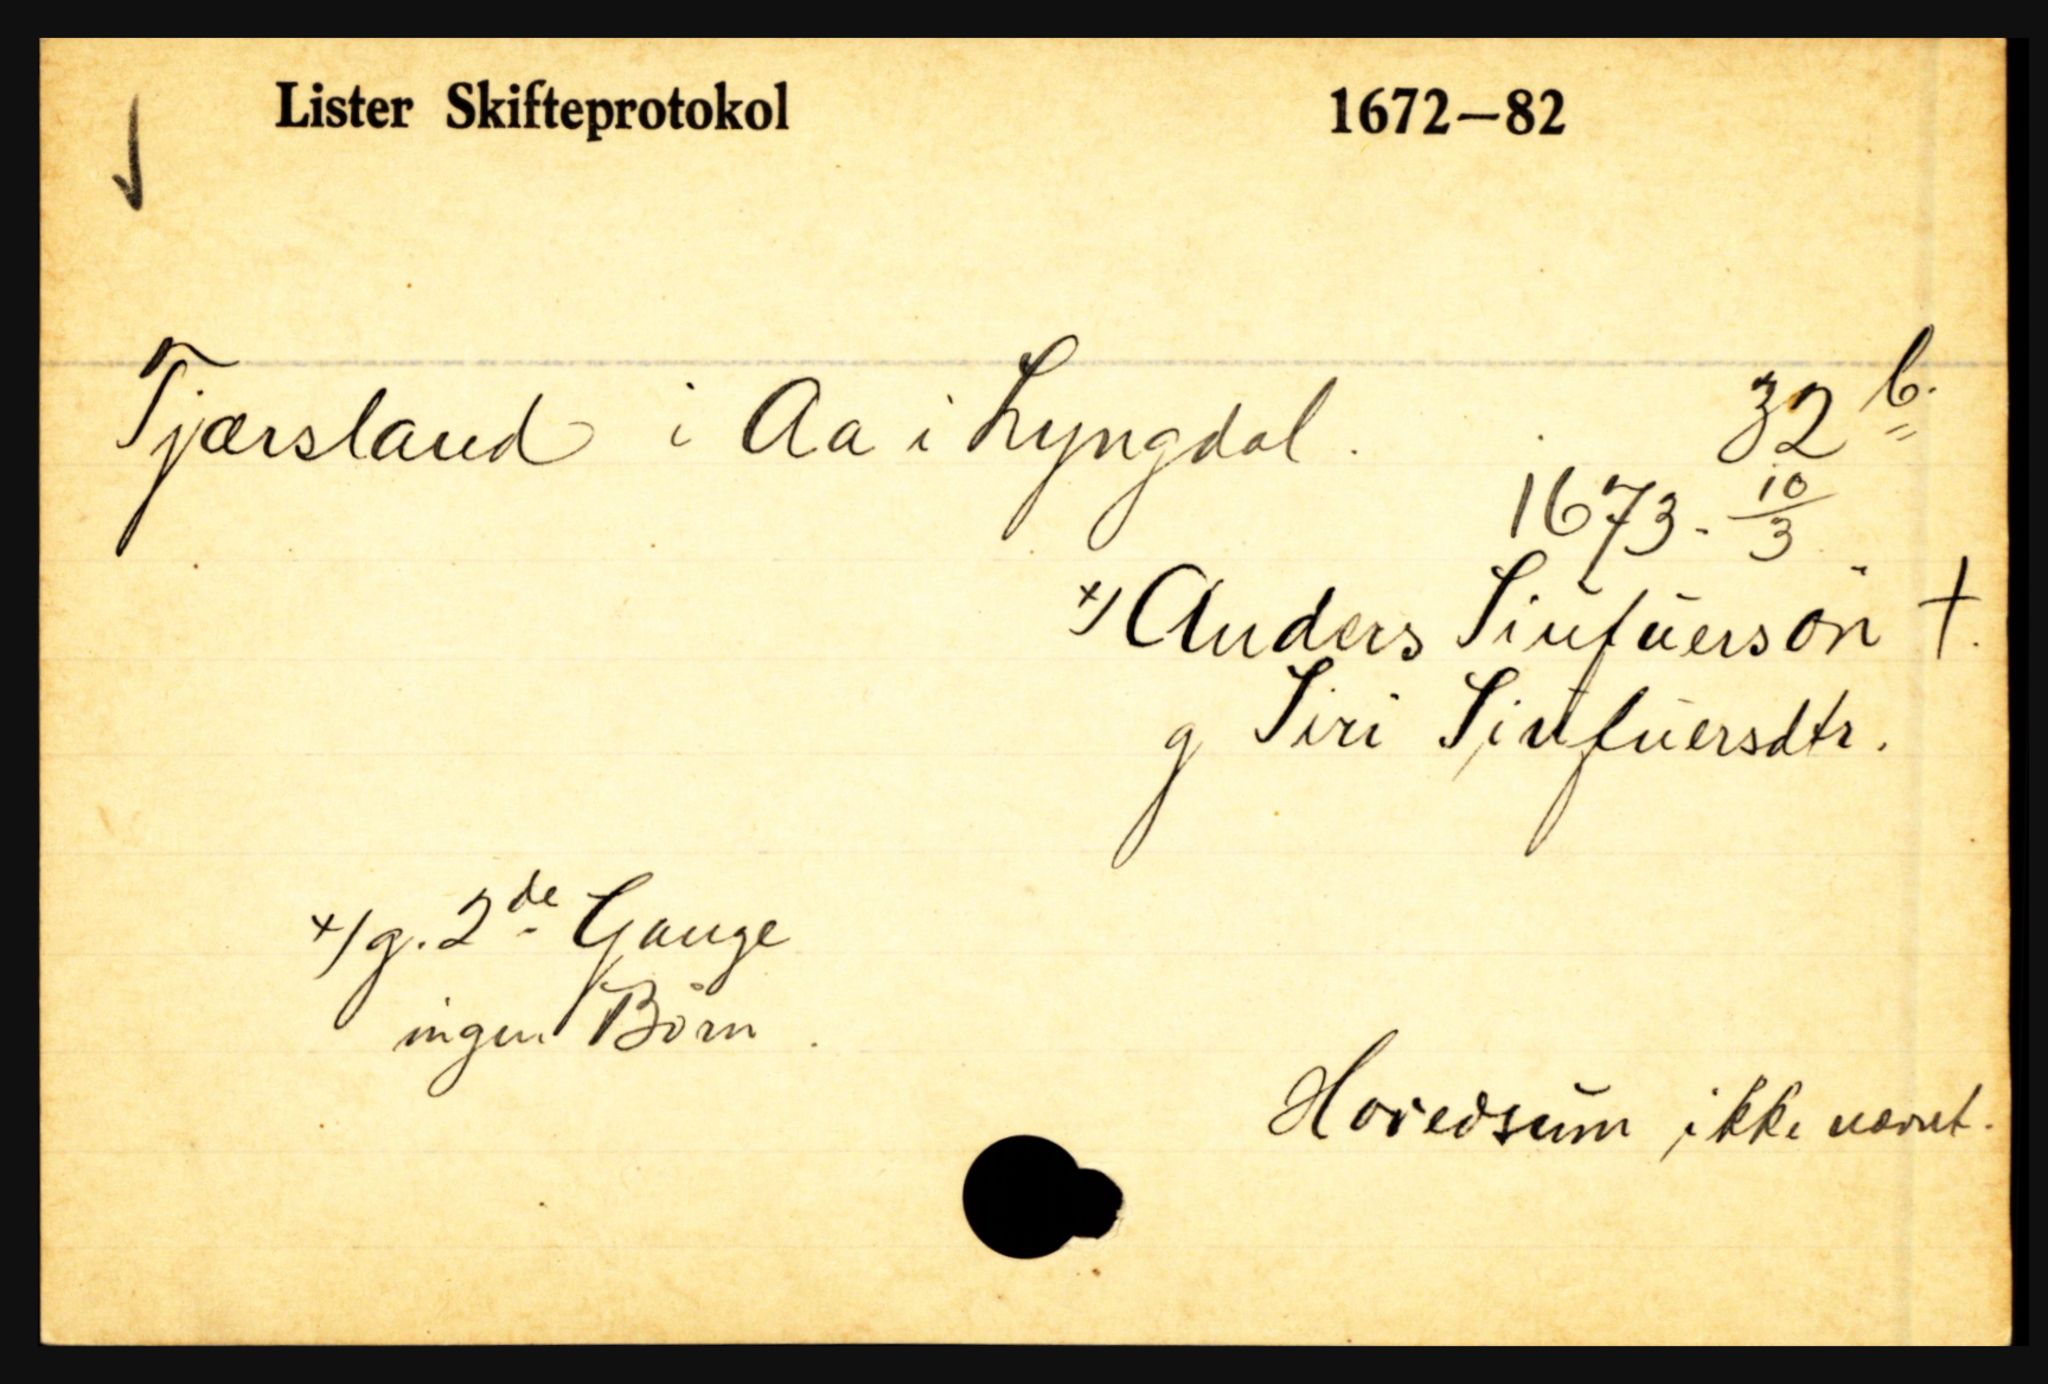 Lister Skifteprotokol 1672—82
Tjærsland i Aa i Lyngdal. 32 b.
1673. 10/3
x/ Anders Siufŭersön †.
g Siri Siŭfŭersdtr.
x/ g. 2de Gange
ingen Börn.
Hovedsŭm ikke nævnt.